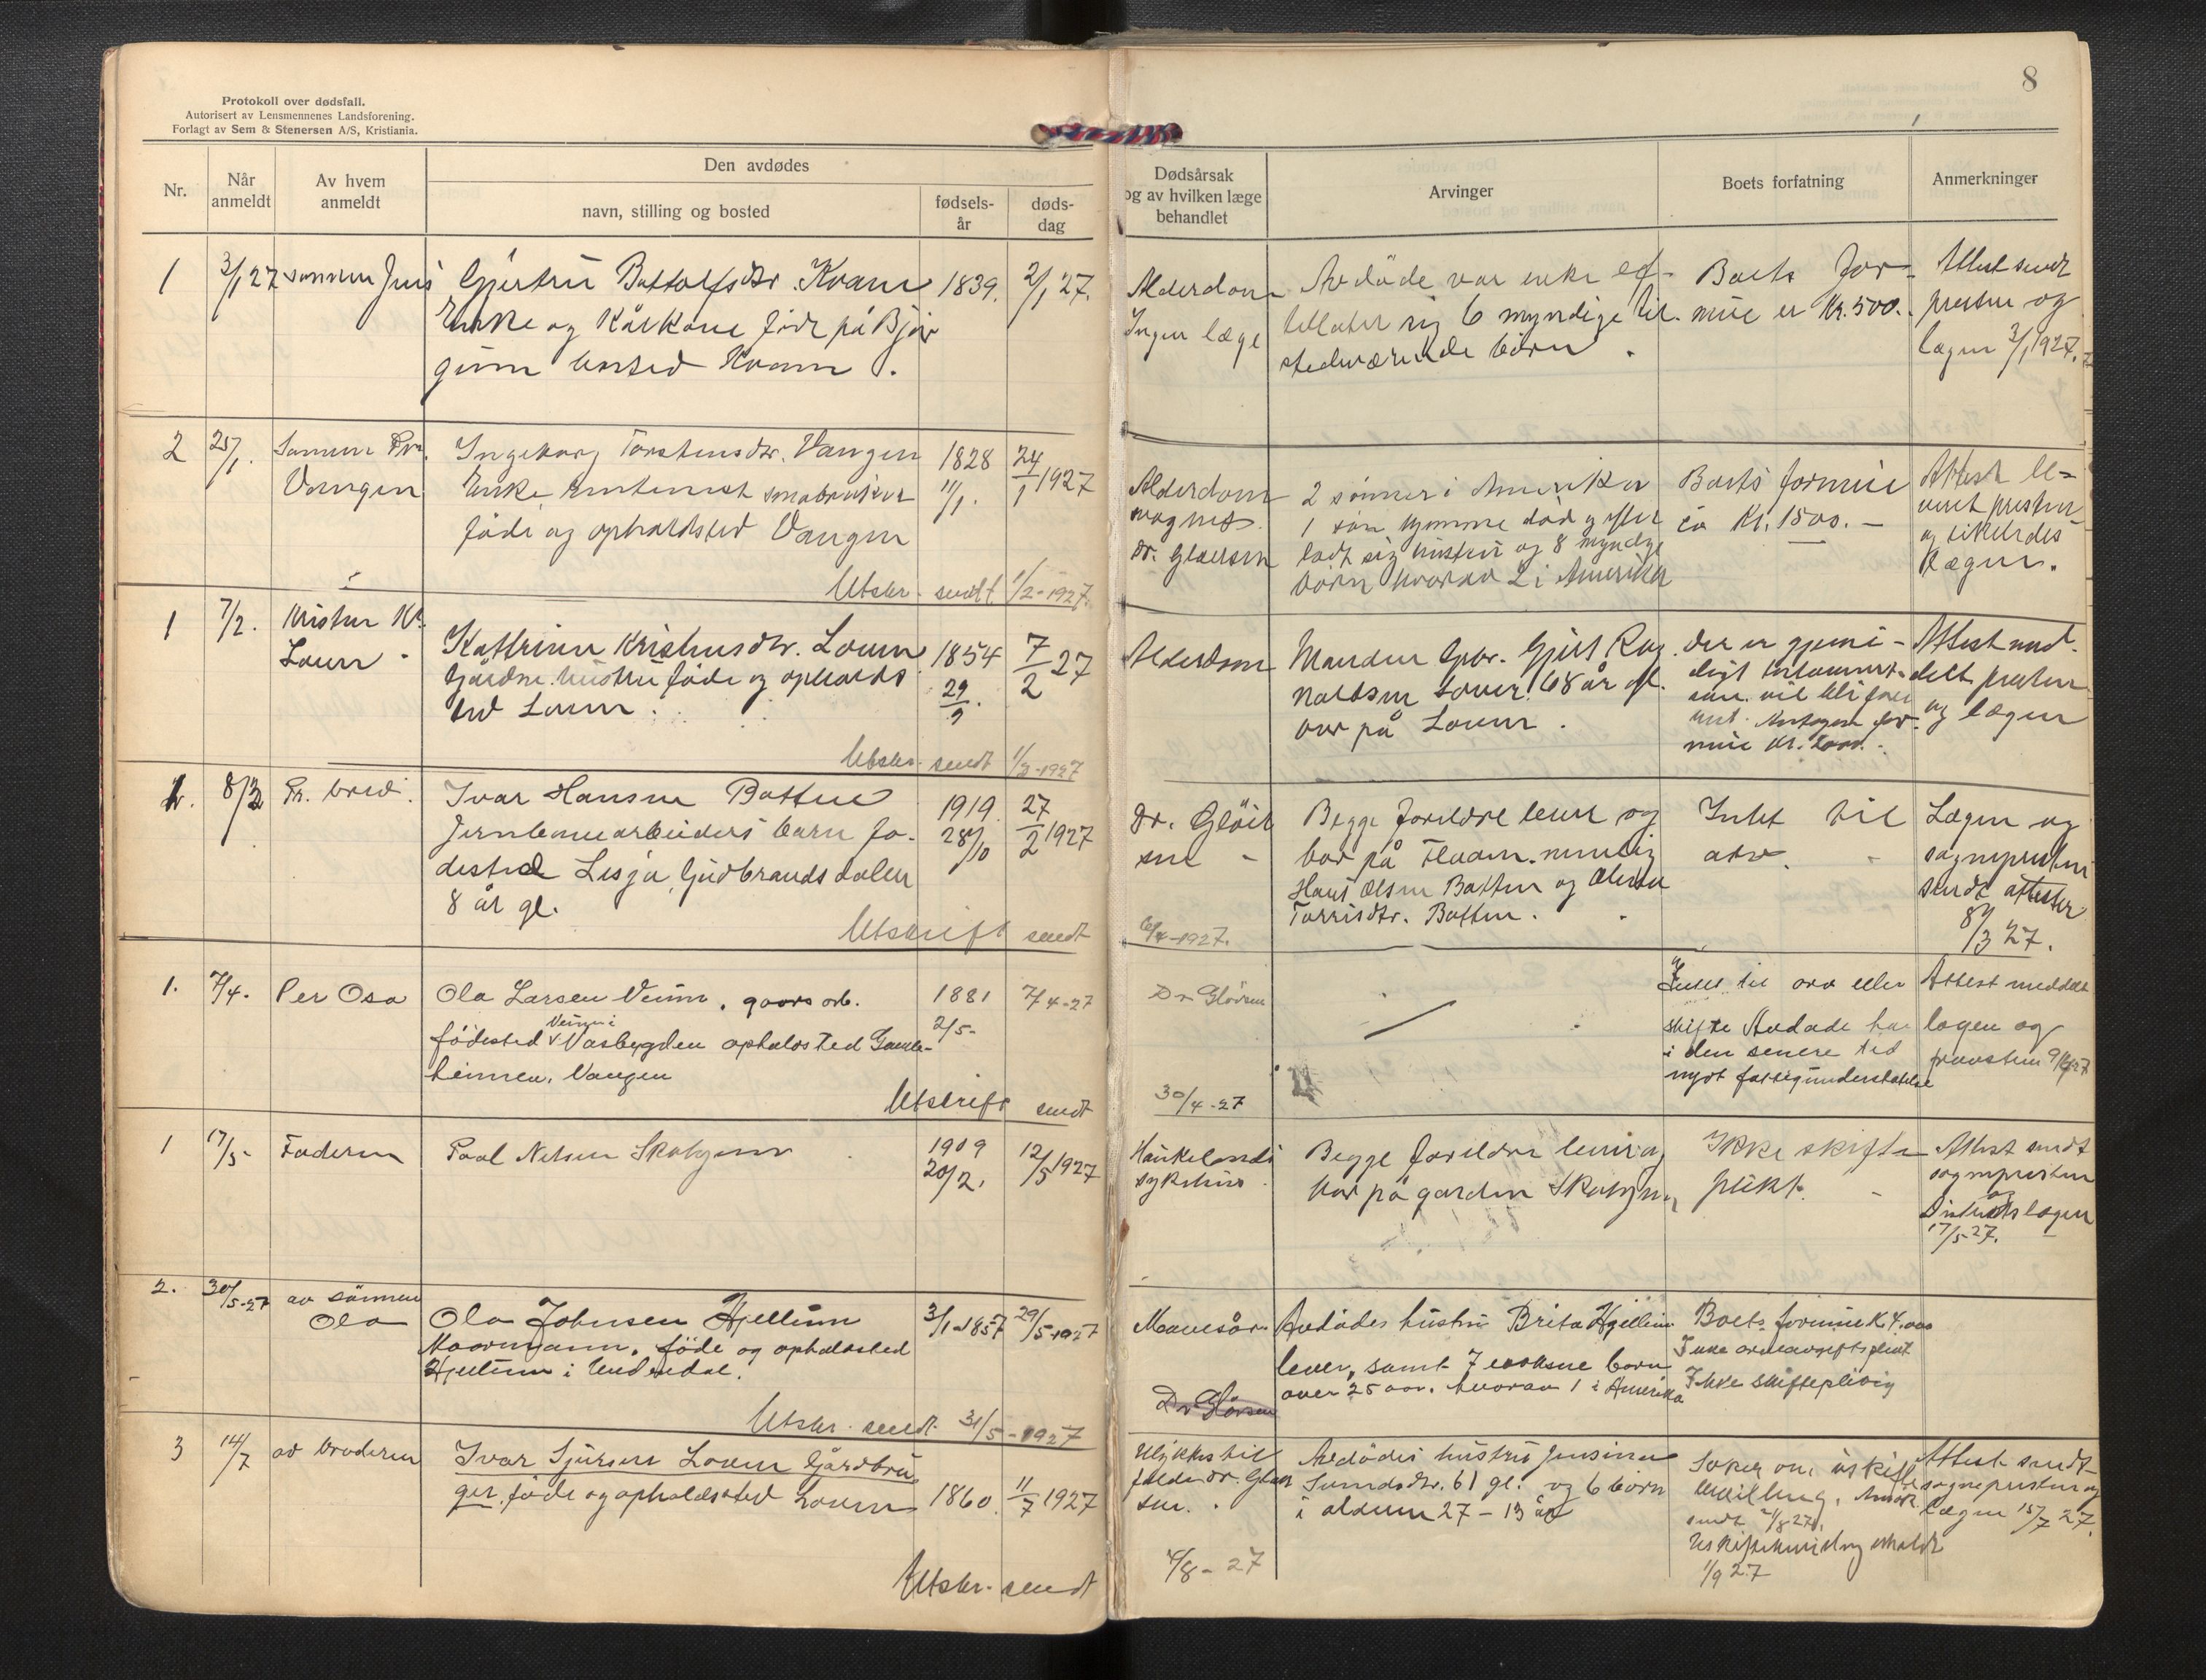 8
Protokoll over dødsfall.
Autorisert av Lensmennenes Landsforening.
Forlagt av Sem & Stenersen A/S, Kristiania.
Nr.
Når anmeldt
Av hvem anmeldt
Den avdødes
navn, stilling og bosted
fødsels-år
døds-dag
Dødsårsak og av hvilken læge behandlet
Arvinger
Boets forfatning
Anmerkninger
1 3/1 27 sønnen Jens
Gjertrù Bottolfsdtr. Kvam 1839. 2/1 27.
Enke og Kårkone føde på Bjør
gum bosted Kvam.
Alderdom
Ingen læge
Avdøde var enke ef-
terlater sig 6 myndige til-
stedeværende børn.
Boets for-
mùe er Kr. 500.
Attest sendt
presten og
lægen 3/1 1927.
2 25/1. Sønnen
Vangen
Ingeborg Torstensdtr. Vangen 1828 24/1 1927
Enke smabruker 11/1.
føde og opholdsted Vangen
Utskr. sendt 1/2-1927.
Alderdom
dr. Gløersen
2 sønner i Amerika
1 søn hjemme død og efter
ladt sig hùstrù og 8 myndige
børn hvorav 2 i Amerika
Boets formùe
ca Kr. 1500.-
Attest le-
veret presten
lægen.
1 7/2. Kristen
Loven
Kattrina Kristensdtr. Loven 1854 7/2 27
hùstrù føde og opholds
sted Loven.
Utskr. sendt 1/3-1927
Alderdom
Manden Gbr. Gjert Rag
naldsen Loven 68 år gl.
bor på Loven.
Der er gjensi-
digt testament
mùe Kr.
Attest med-
delt presten
og lægen
2. 8/3 Pr. brev.
Ivar Hansen Botten 1919 27/2 1927
Jernbanearbeiders barn fø- 28/10
dested Lesja, Gùdbrandsdalen
8 år gl.
Utskrift sendt
6/4-1927.
Dr. Gløer
sen -
Begge foreldre lever og
bor på Flaam. nemlig
Hans Olsen Botten og
Torrisdtr. Botten.
Intet til
arv.
Lægen og
sognepresten
sendt attester
8/3 27.
1. 7/4. Per Osa
Ola Larsen Veum, gaards arb. 1881 7/4-27
fødested Veum i Vasbygden opholdsted Gamle- 2/5-
heimen, Vangen
Utskrift sendt
30/4-27
Dr Gløersen
Intet til arv eller
skifte Avdøde har
i den senere tid
nydt fattigunderstøttelse
Attest meddelt
lægen og
presten 9/4 27
1 17/5- Faderen
Paal Nelsen Skahjem 1909 12/5 1927
20/2.
Haukelands
sykehùs
Begge foreldre lever og
bor på garden Skahjem
Ikke skifte
plikt.
Attest sendt
sognepresten
og
Distriktslægen
17/5-27.
2. 30/5-27 av sønnen
Ola
Ola Johnsen Hjellum 3/1-1857 29/5-1927
Kaarmann, føde og opholdssted
Hjellum i Undredal.
Utskr. sendt 31/5-1927
Mavesår
Dr Gløersen
Avdødes hùstrù Brita Hjellum
lever, samt 7 voksne børn
over 25 aar, hvorav 1 i Amerika
Boets formùe K. 4.000
Ikke arveavgiftsplikt
Ikke skiftepliktig
3 14/7 av broderen
Ivar Sjursen Loven Gårdbrù
ger, føde og opholdssted Loven 1860. 11/7 1927
Utskr. sendt
4/8-27
Ulykkestil
felde dr. Gløer
sen.
Avdødes hùstrù Jensina
61 gl. og 6 børn
i alderen 27 - 13 år
Søker om ùskifte
bevilling.
sendt
Uskiftebevilling erholdt
1/9 27
Attest sendt
sognepresten og
lægen 15/7 27.